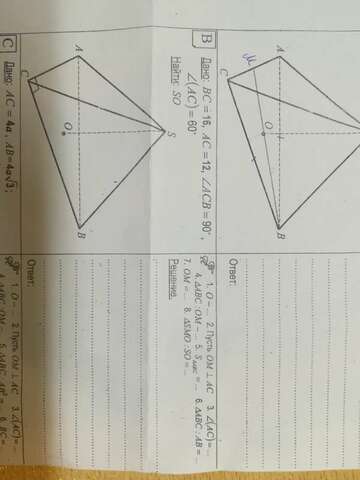 M
A
C
O
H
B
Ответ:
B
Дано: BC = 16, AC = 12, ∠ACB = 90°,
∠(AC) = 60°
Найти: SO
A
C
O
S
B
1. O – ... 2. Пусть OM ⊥ AC 3. ∠(AC) = ...
4. ΔABC : OM – ... 5. S = ... 6. ΔABC : AB = ...
7. OM = ... 8. ΔSMO : SO = ...
Решение.
Ответ:
C
Дано: AC = 4a, AB = 4a√3;
A
C
O
S
B
1. O – ... 2. Пусть OM ⊥ AC 3. ∠(AC) = ...
4. ΔABC : OM – ... 5. ΔABC : = ... 6. BC = ...